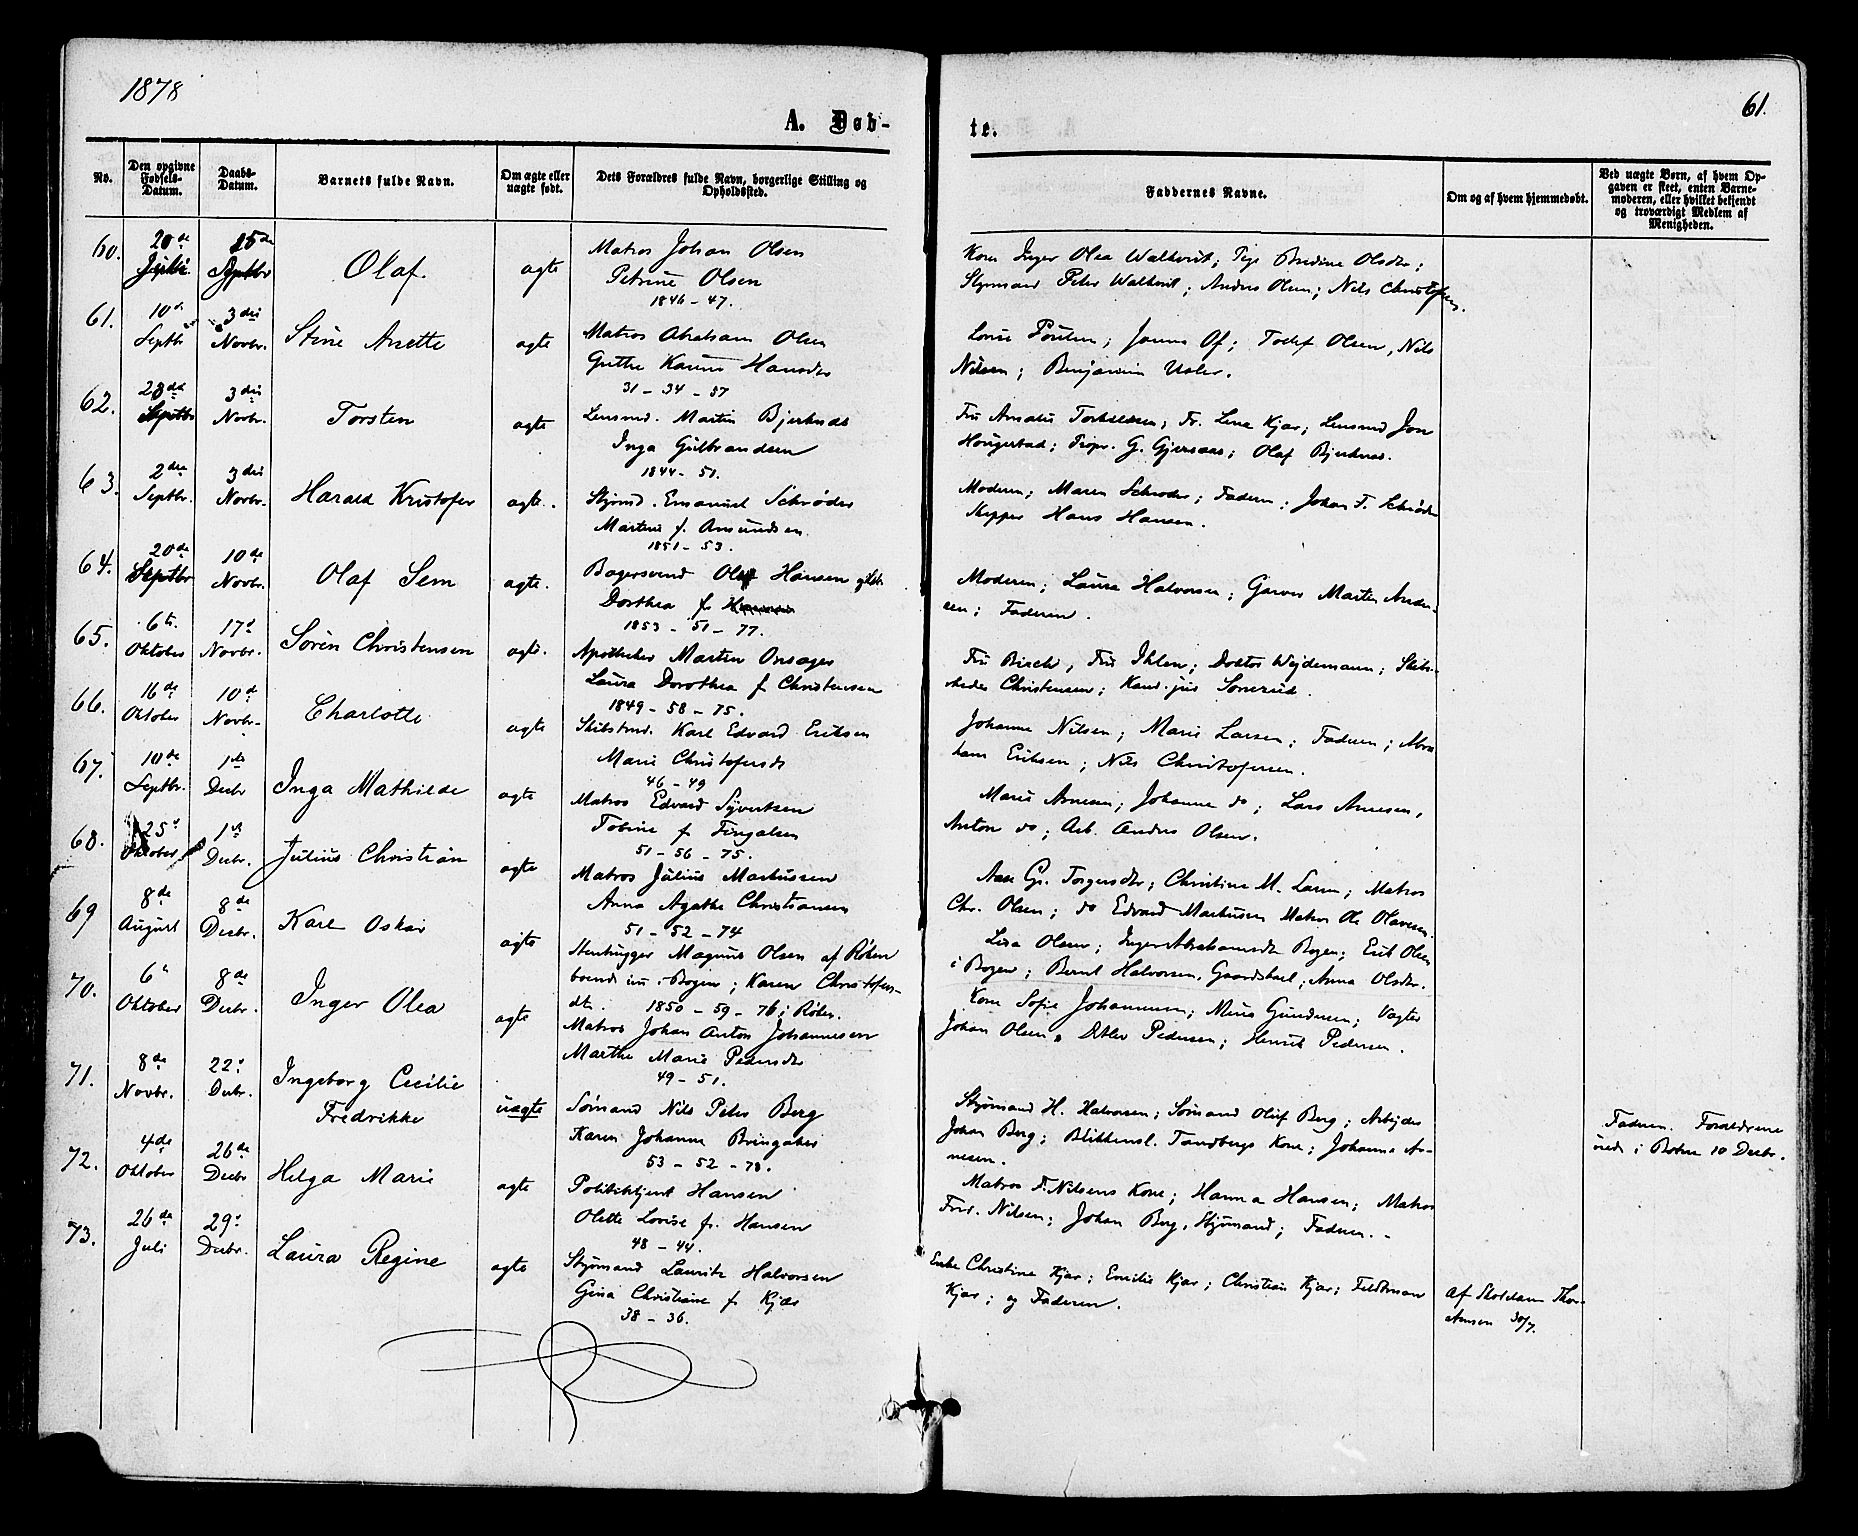 1878
61.
A. Døb-
te.
No.
Den opgivne Fødsels-Datum.
Daabs-Datum.
Barnets fulde Navn.
Om ægte eller uægte født.
Dets Forældres fulde Navn, borgerlige Stilling og Opholdssted.
Faddernes Navne.
Om og af hvem hjemmedøbt.
Ved uægte Børn, af hvem Op-
gaven er skeet, enten Barne-
moderen, eller hvilket bekjendt
og troværdigt Medlem af
Menigheden.
60. 20de 15de Matros Johan Olsen
Olaf. ægte Petrine Olsen
1846-47.
Kone Inger Olea Walkvist; Pige Olsdtr;
Styrmand Peter Walkvist; Anders Olsen; Nils Christofersen.
61. 10de Septbr 3die Novbr. Stine Anette ægte Matros Abraham Olsen
Grethe Karine Hansdtr
31-34-57
Olsen, Nils
Nilsen; Benjamin
62. 28de Septbr 3die Novbr. Torsten ægte Lensmd. Martin Bjerknes
Inga Gulbrandsen
1844-51.
Fr. Lina Kjær; Lensmd Jon
Hougestad; Propr. G. Olaf Bjerknes.
63. 2den Septbr. 3die Novbr. Harald Kristofer ægte. Styrmd. Emanuel Schrøder
Martine f. Amundsen
1851-53.
Moderen; Maren Schrøder; Faderen; Johan F. Schrøder
Skipper Hans Hansen.
64. 20de Septbr 10de Novbr. Olaf Sem ægte. Bagersvend Olaf Hansen
Dorthea f.
1853-51-77.
Moderen; Laura Halvorsen; Garver Martin Ander-
sen; Faderen.
65. 6te Oktober 17d Novbr. Søren Christensen ægte. Apotheker Martin Onsager
Laura Dorothea f Christensen
1849-58-75.
Fru Birch; Fru Ihlen; Doktor Wejdemann; Skibs-
rheder Christensen; Kand. jur Sønerud.
66. 16de Oktober 10d Novbr. Charlotte ægte Karl Edvard Eriksen
Marie Christofersdt
46-49
Johanne Nilsen; Marie Larsen; Faderen; Abra
ham Eriksen; Nils Christofersen.
67. 10de Septbr. 1ste Decbr Inga Mathilde ægte Matros Edvard Syvertsen
Tobine f Fingalsen
51-56-75.
Marie Arnesen; Johanne do; Lars Arnesen,
Anton do; Arb. Anders Olsen.
68. 25d Oktober 1ste Decbr. Julius Christian ægte Matros Julius Markussen
Anna Agathe Christiansen
51-52-74
Torgersdtr; Christine M. Larsen; Matros
Chr. Olsen; do Edvard Markussen Matros Ole Olavesen.
69 8de August 8de Decbr. Karl Oskar ægte Stenhugger Magnus Olsen af Røken
boende Bogen; Karen Christofers-
dt. 1850-59-76 i Røken.
Lisa Olsen; Inger Abrahamsdt Bogen; Erik Olsen
i Bogen; Bernt Halvorsen, Anna Olsdtr.
70. 6te Oktober 8de Decbr. Inger Olea ægte Matros Johan Anton Johannesen
Marthe Marie Pedersdtr
49-51.
Kone Sofie Johannesen; Vagter
Johan Olsen, Ditlev Pedersen; Henrik Pedersen.
71. 8de Novbr. 22d Decbr. Ingeborg Cecilie
Fredrikke uægte Sømand Nils Peter Berg
Karen Johanne Bringaker
53-52-78.
Styrmand H. Halvorsen; Sømand Oluf Berg; Arbejder
Johan Berg; Blikkensl. Tandbergs Kone; Johanne Ar-
nesen.
Faderen. Forældrene
10 Decbr.
72. 4de Oktober 26de Decbr Helga Marie ægte Politibetjent Hansen
Olette Lovise f. Hansen
48-44.
Matros F. Nilsens Kone; Hanna Hansen; Matros
Fred. Nilsen; Johan Berg, Styrmand; Faderen.
73. 26de Juli 29d Decbr. Laura Regine ægte Styrmand Lauritz Halvorsen
Gina Christiane f. Kjær
38-36.
Enke Christine Kjær; Emilie Kjær; Christian Kjær;
Kjær; og Faderen.
af Thor-
30/7.